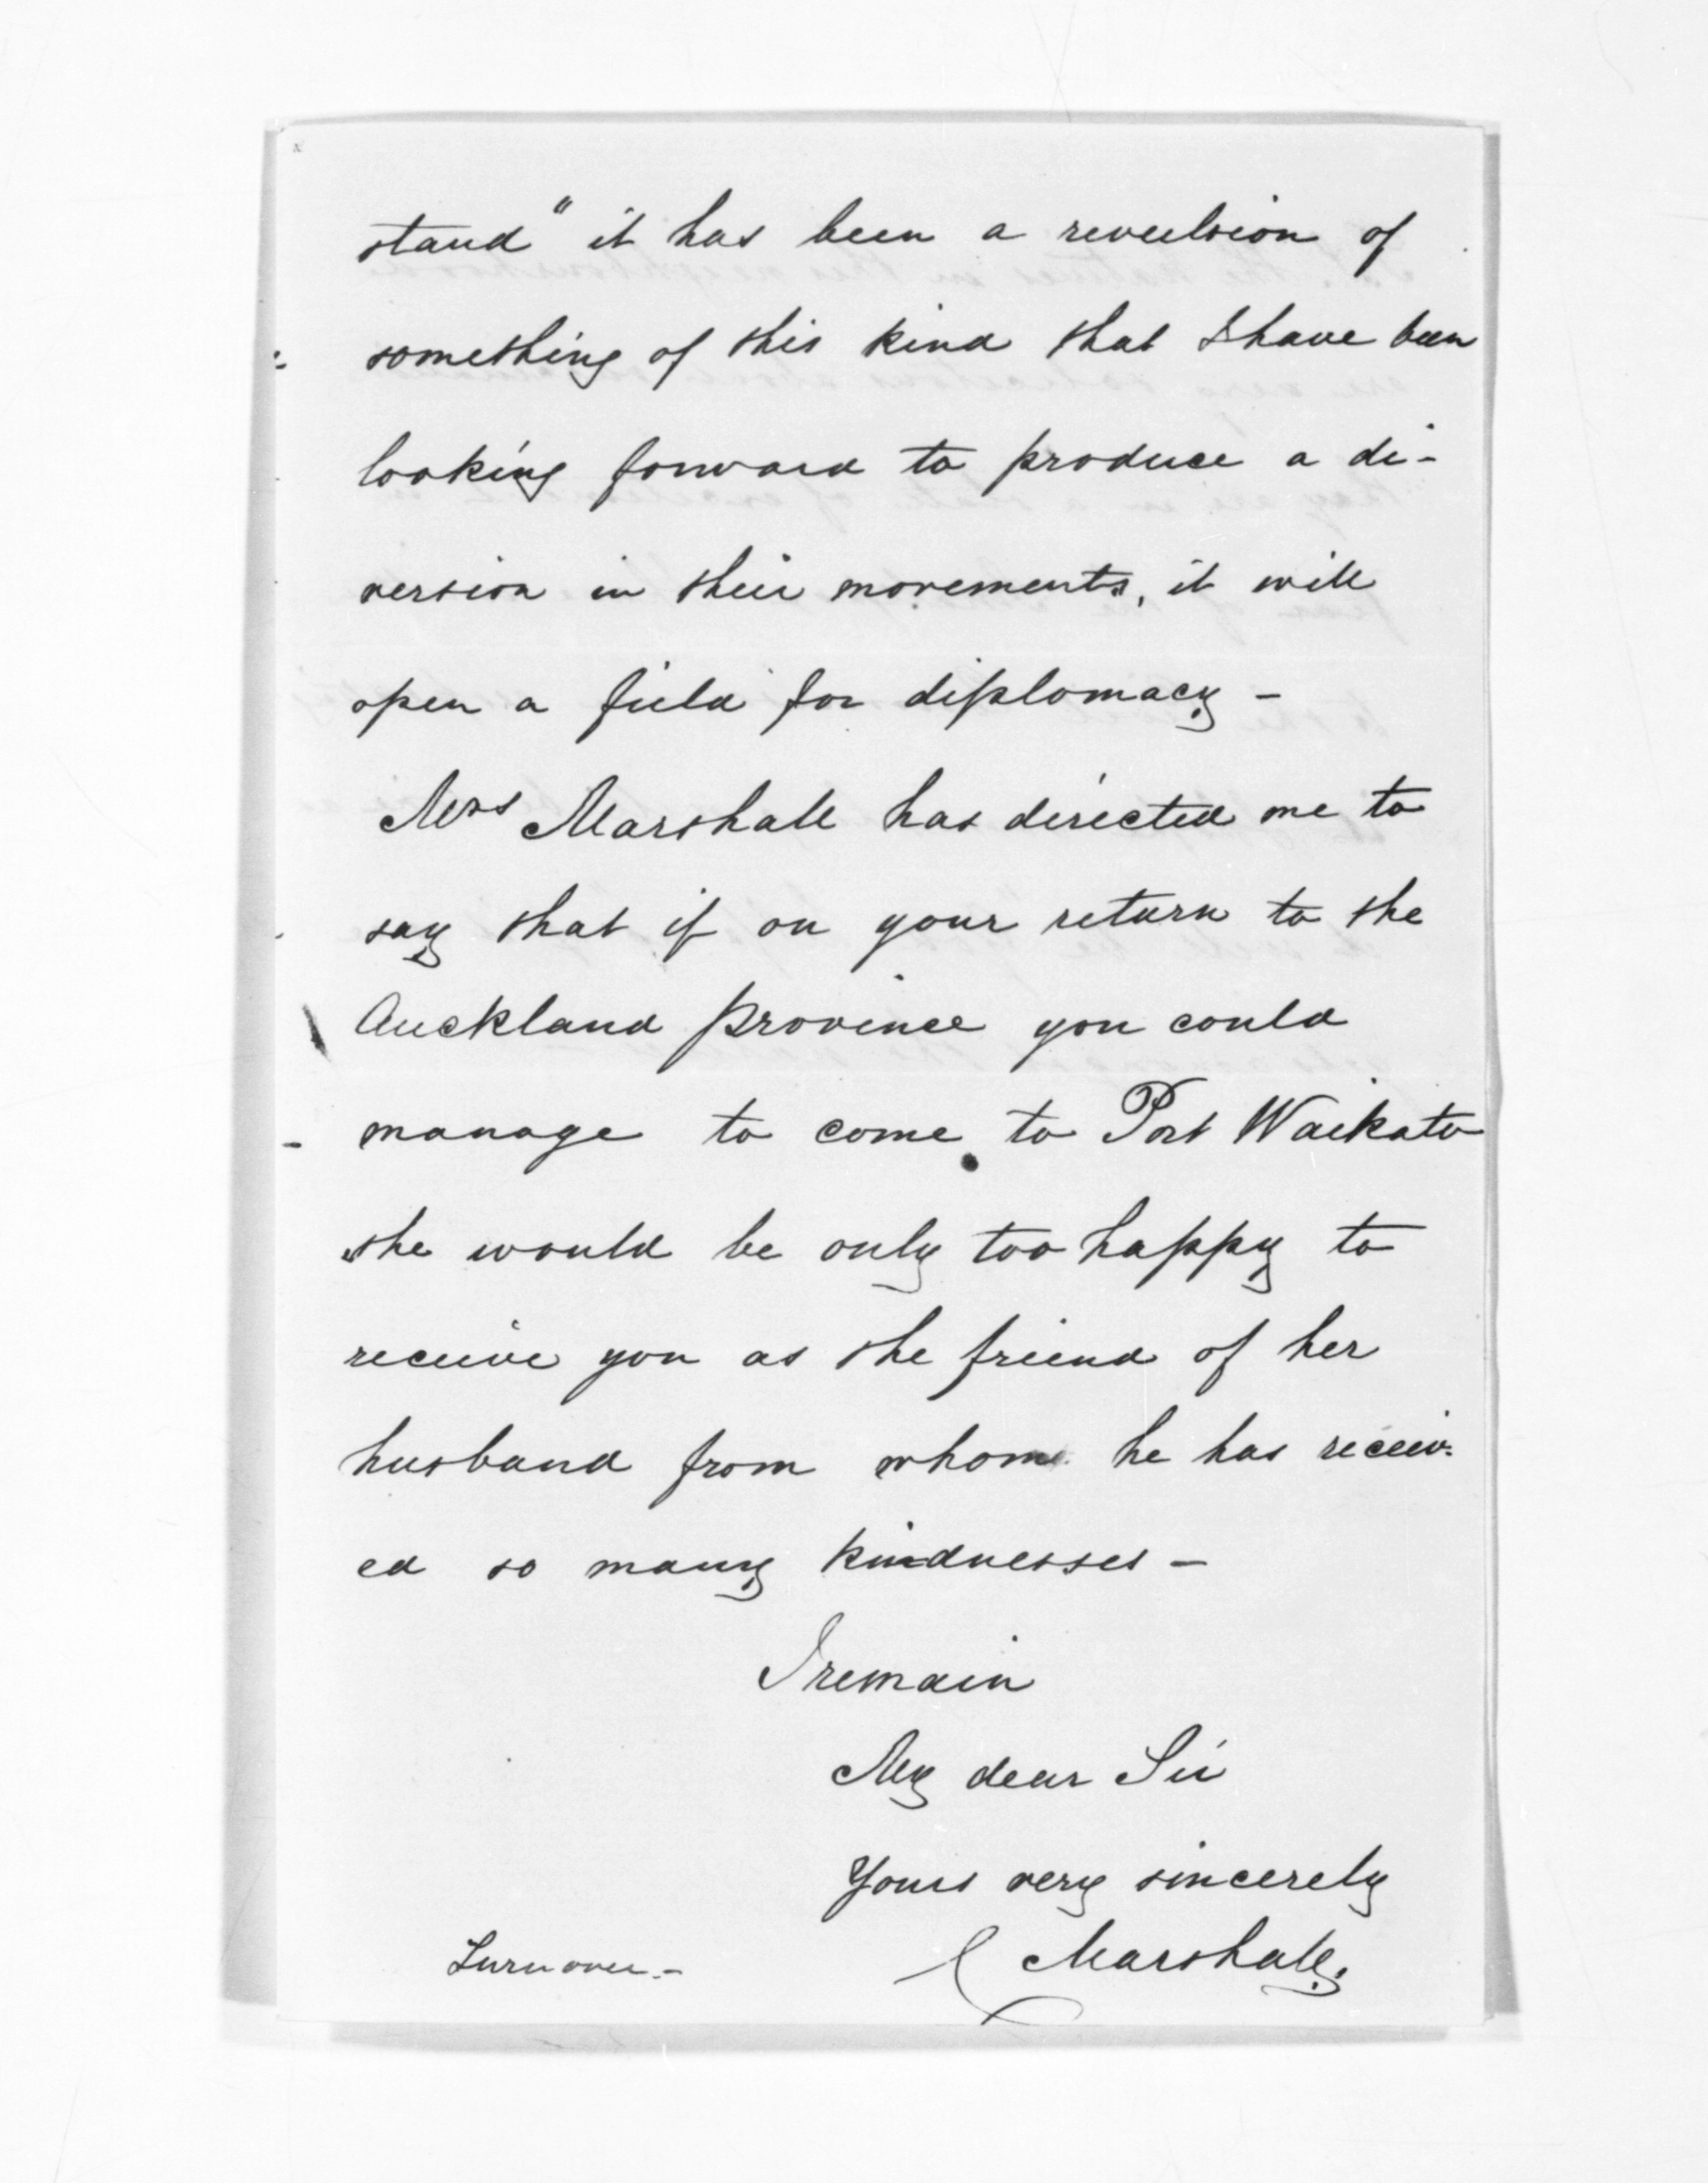 stand" it has been a revulsion of
something of this kind that I have been
looking forward to produce a di-
version in their movements, it will
open a field for diplomacy -
Mrs Marshall has directed me to
say that if on your return to the
Auckland province you could
manage to come to Port Waikato
she would be only too happy to
receive you as the friend of her
husband from whom he has receiv-
ed so many kindnesses -
I remain
My dear Sir
Yours very sincerely
Marshall.
Turn over. -